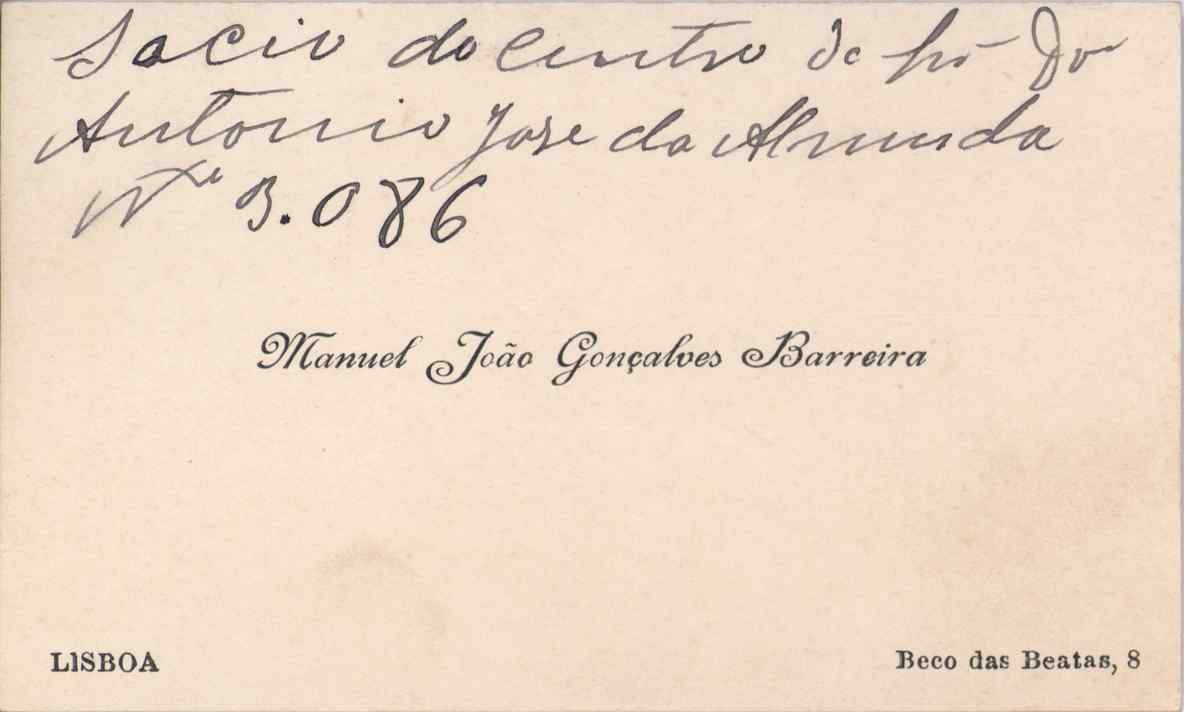 Socio do Centro
Antonio Jose da Almeida
Nº 3.086
Manuel João Gonçalves Barreira
LISBOA
Beco das Beatas, 8